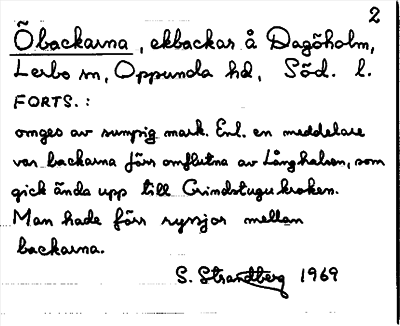 2
Öbackarna, ekbackar å Dagöholm,
Lerbo sn, Oppunda hd, Söd. l.
FORTS. :
omges av sumpig mark. Enl. en meddelare
var backarna förr omflutna av Långhalsen, som
gick ända upp till Grindstugukroken.
Man hade förr ryssjor mellan
backarna.
S. Strandberg 1969